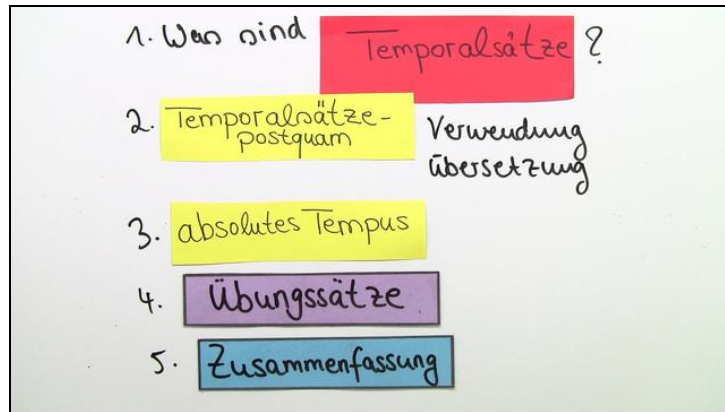 1. Was sind Temporalsätze?
2. Temporalsätze-
postquam
Verwendung
Übersetzung
3. absolutes Tempus
4. Übungssätze
5. Zusammenfassung